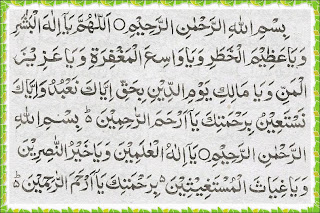 بِسْمِ اللهِ الرَّحْمٰنِ الرَّحِيْمِ ○ اَللّٰهُمَّ يَآ اِلٰهَ الْبَشَرِ
وَيَاعَظِيْمَ الْخَطَرِ وَيَاوَاسِعَ الْمَغْفِرَةِ وَيَاعَزِيْزَ
الْمَنِّ وَيَا مَالِكَ يَوْمِ الدِّيْنِ بِحَقِّ اِيَّاكَ نَعْبُدُ وَاِيَّاكَ
نَسْتَعِيْنُ بِرَحْمَتِكَ يَآ اَرْحَمَ الرَّاحِمِيْنَ ط بِسْمِ اللهِ
الرَّحْمٰنِ الرَّحِيْمِ ○ يَآ اِلٰهُ الْعٰلَمِيْنَ وَيَاخَيْرُ النّٰصِرِيْنَ
وَيَاغِيَاثَ الْمُسْتَغِيْثِيْنَ ○ بِرَحْمَتِكَ يَآ اَرْحَمَ الرَّاحِمِيْنَ ط